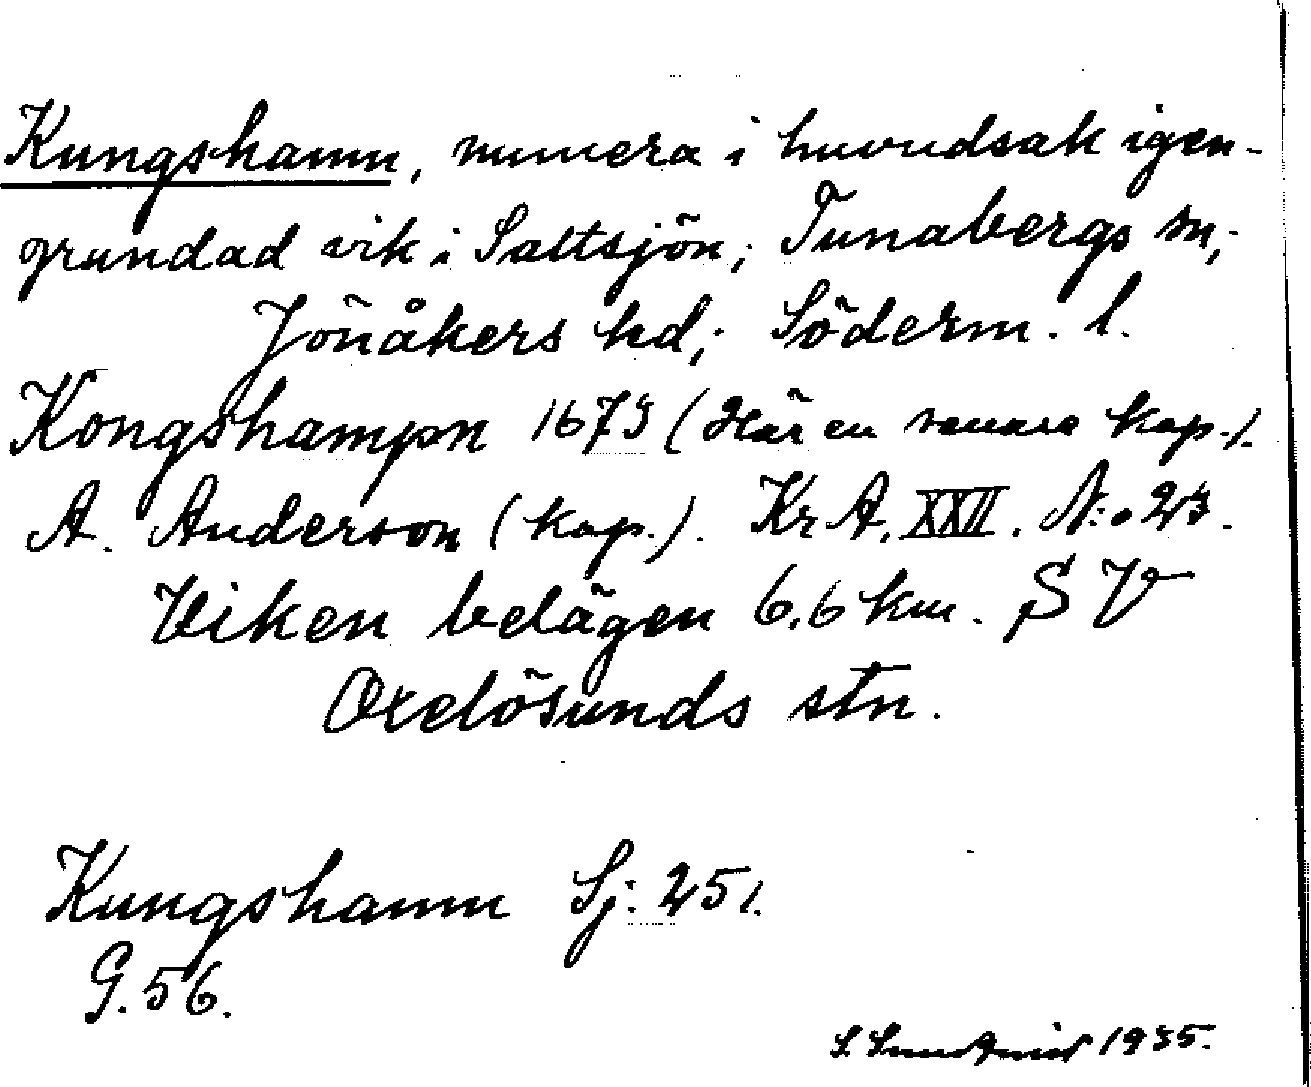 Kungshamn, numera i huvudsak igen-
grundad vik i Saltsjön; Tunabergs sn;
Jönåkers hd; Söderm. l.
Kongshampn 1673 (Här en senare kop.).
A. Anderson (kop.). Kr A. XXII. N:o 23.
Viken belägen 6,6 km. SV
Oxelösunds stn.
Kungshamn Sj: 251.
G. 56.
S. 1935.